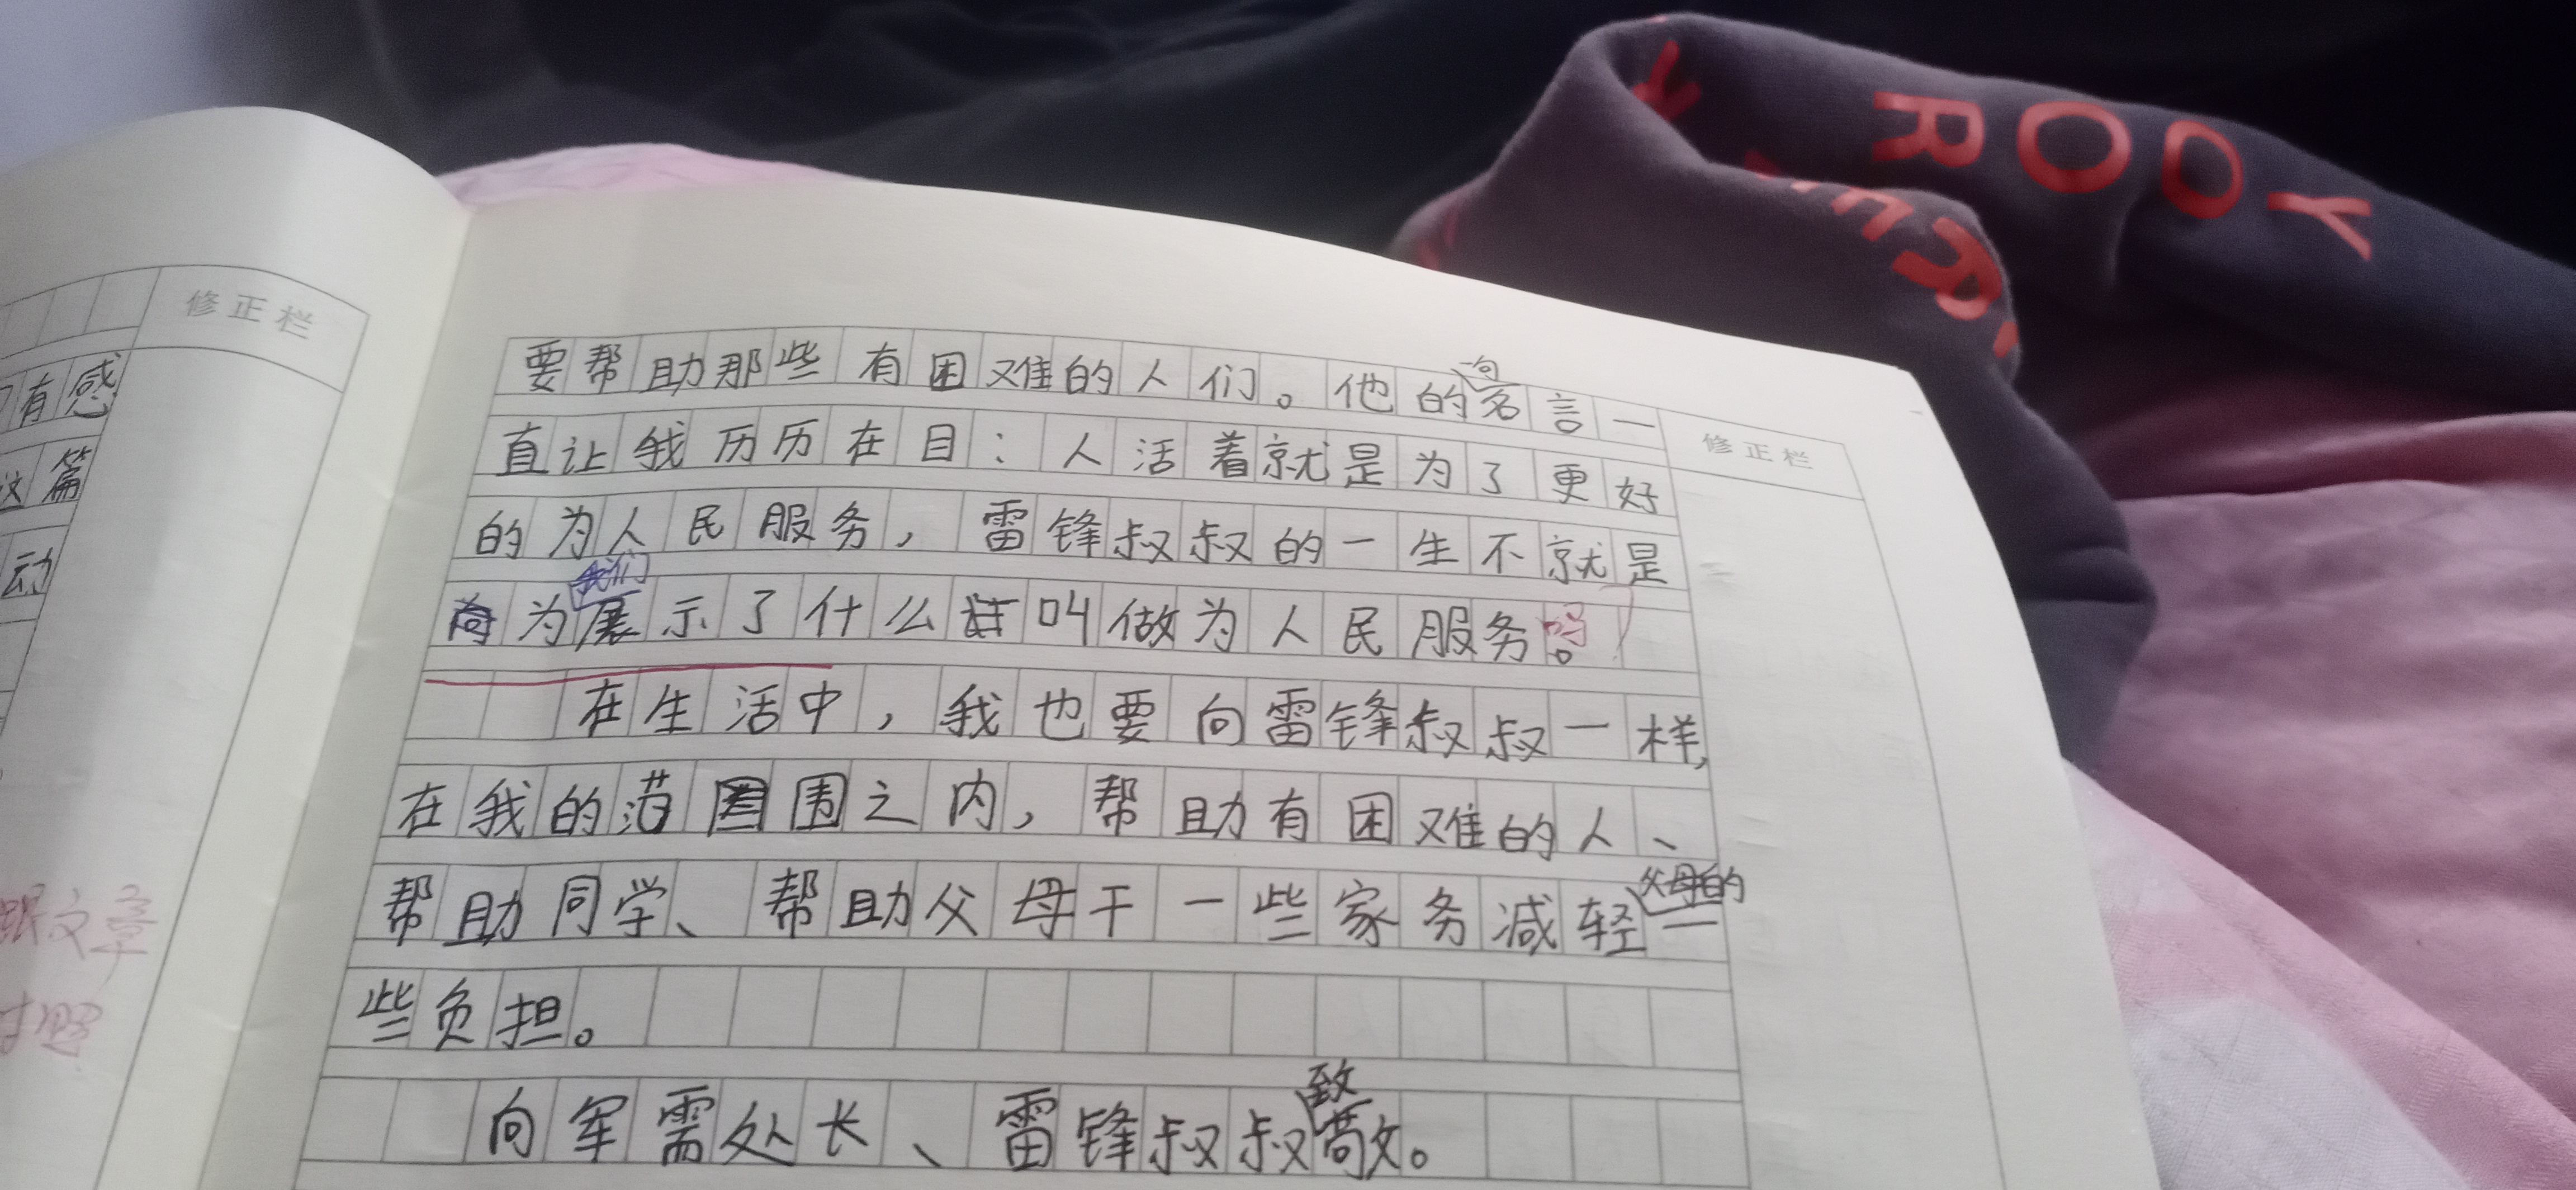 修正栏
有感
这篇
动
跟文章
要帮助那些有困难的人们。他的一句名言一
直让我历历在目：人活着就是为了更好
的为人民服务，雷锋叔叔的一生不就是
为我们展示了什么叫做为人民服务吗？
在生活中，我也要向雷锋叔叔一样，
在我的范围之内，帮助有困难的人、
帮助同学、帮助父母干一些家务减轻父母的一
些负担。
向军需处长、雷锋叔叔致敬。
修正栏
ROOY